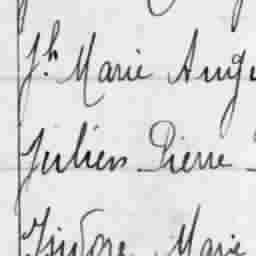 Jh. Marie Aug
Julien Pierre
Isidore Marie